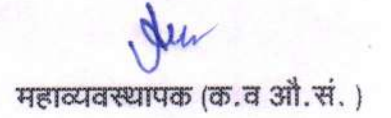 महाव्यवस्थापक (क.व औ.सं. )